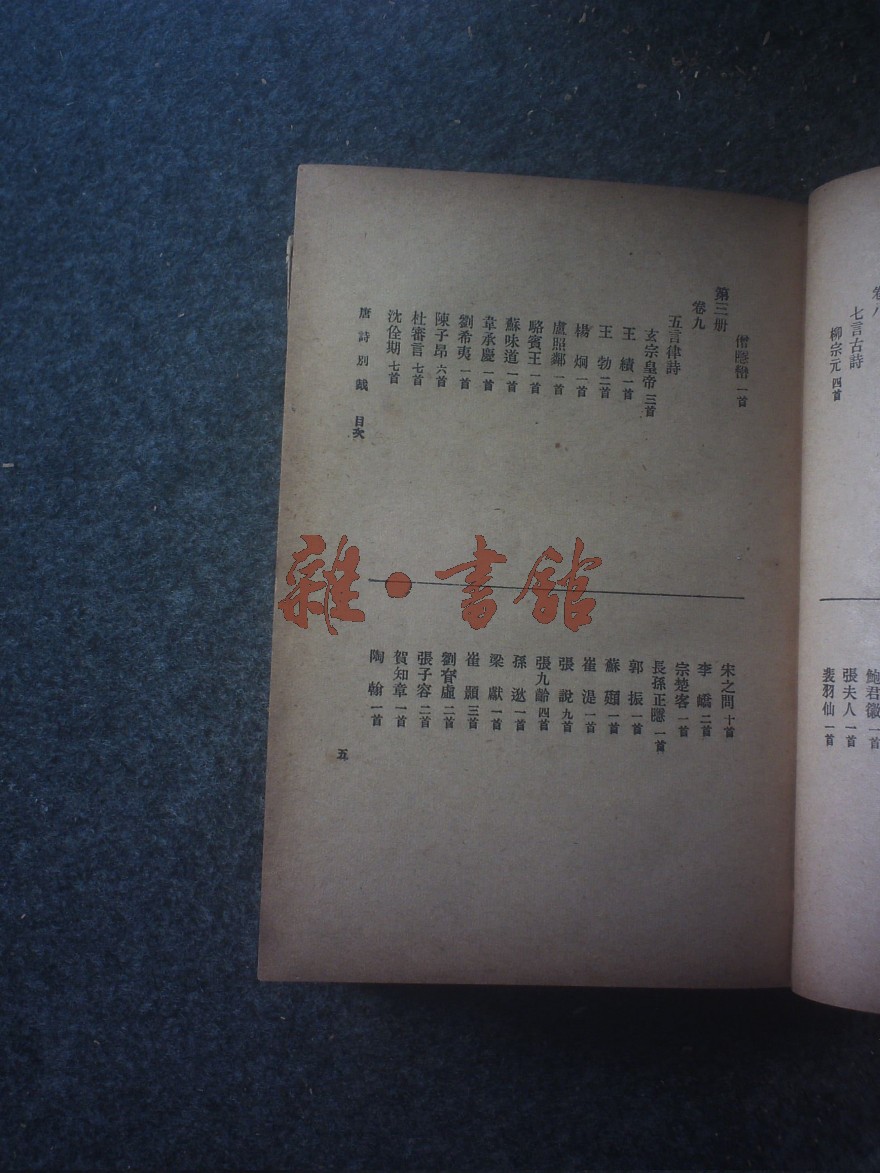 卷八
七言古詩
柳宗元 四首
鮑君徽 一首
張夫人 一首
裴羽仙 一首
僧隱巒 一首
第三册
卷九
五言律詩
玄宗皇帝 三首
王績 一首
王勃 二首
楊炯 一首
盧照鄰 一首
駱賓王 一首
蘇味道 一首
韋承慶 一首
劉希夷 一首
陳子昂 六首
杜審言 七首
沈佺期 七首
宋之問 十首
李嶠 二首
宗楚客 一首
長孫正隱 一首
郭振 一首
蘇頲 一首
崔湜 一首
張說 九首
張九齡 四首
孫逖 一首
梁獻 一首
崔顥 三首
劉眘虛 二首
張子容 二首
賀知章 一首
陶翰 一首
唐詩別裁 目次
五
雜·書館